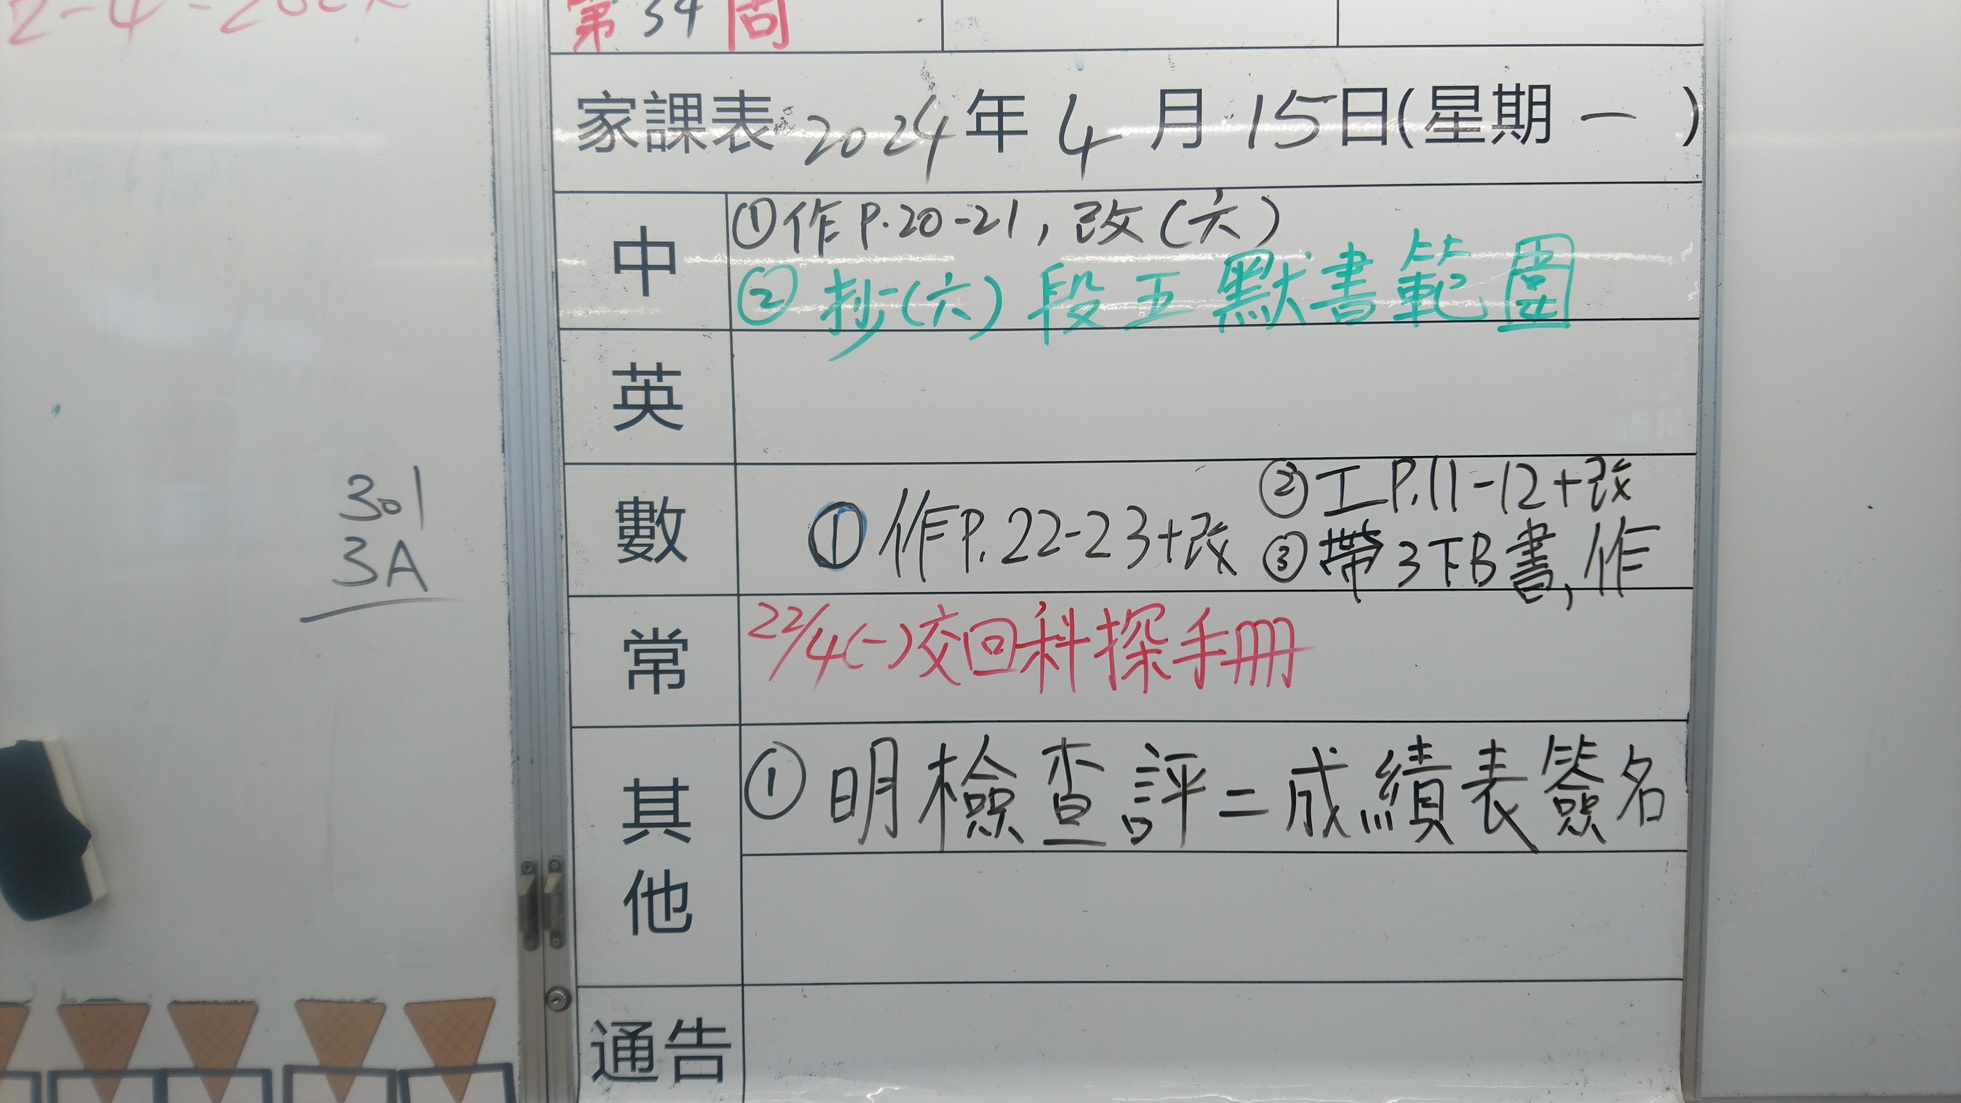 第34周
家課表 2024年4月15日(星期一)
中
①作P.20-21,改(六)
②抄(六)段五默書範圍
英
數
①作P.22-23+改
②工P.11-12+改
③帶3下B書,作
常
22/4(一)交回科探手冊
其他
①明檢查評二成績表簽名
通告
301
3A